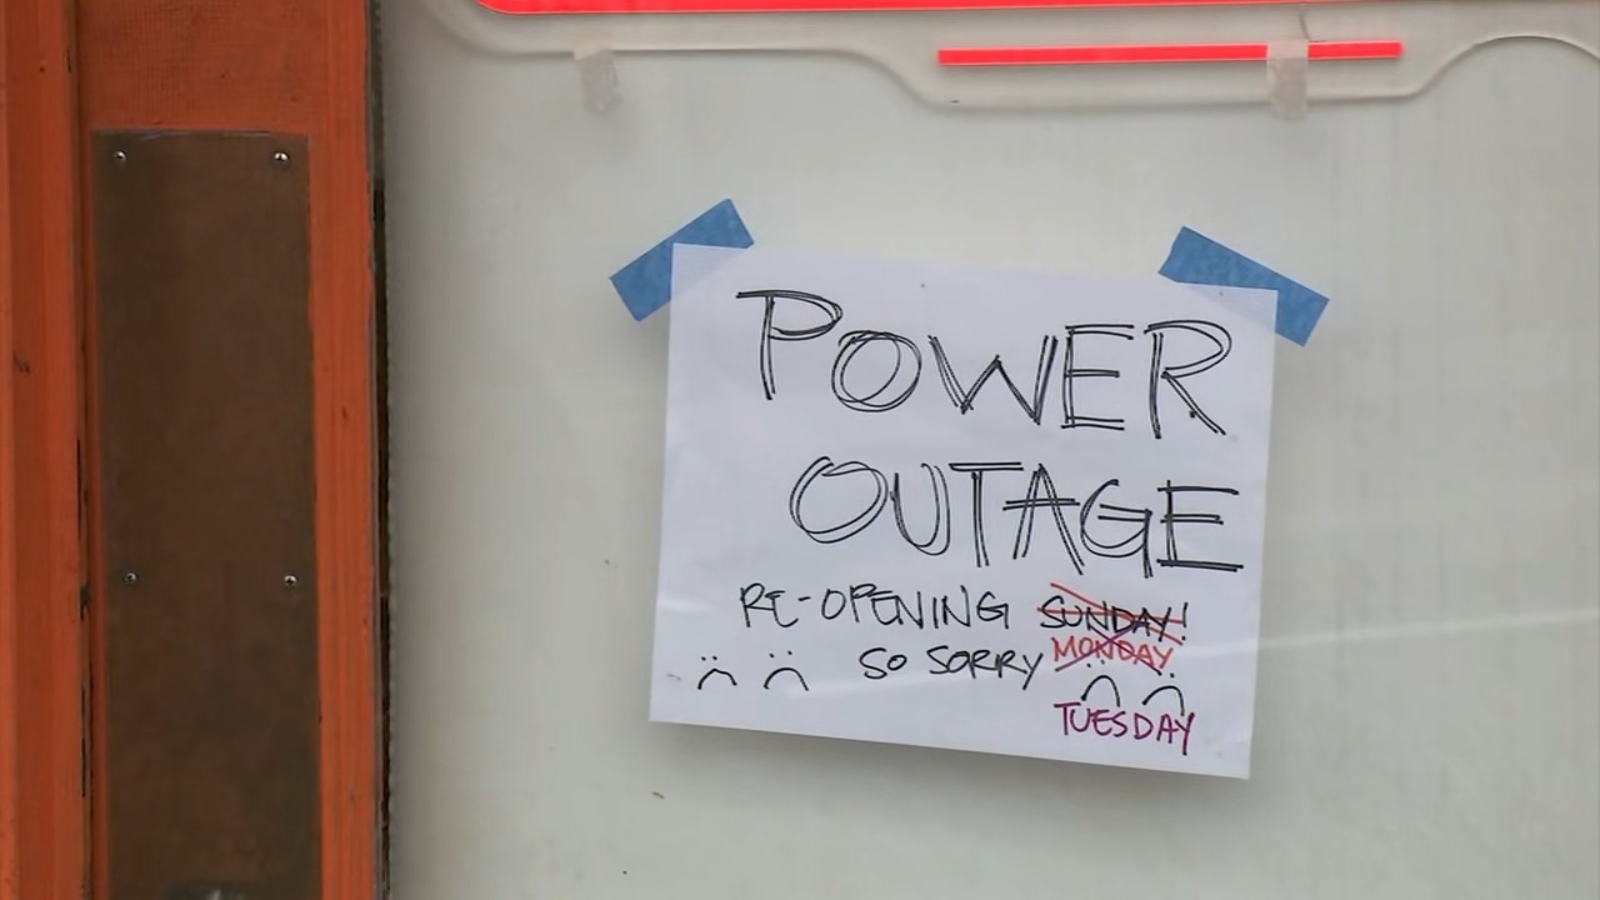 POWER
OUTAGE
RE-OPENING SUNDAY!
SO SORRY MONDAY
TUESDAY